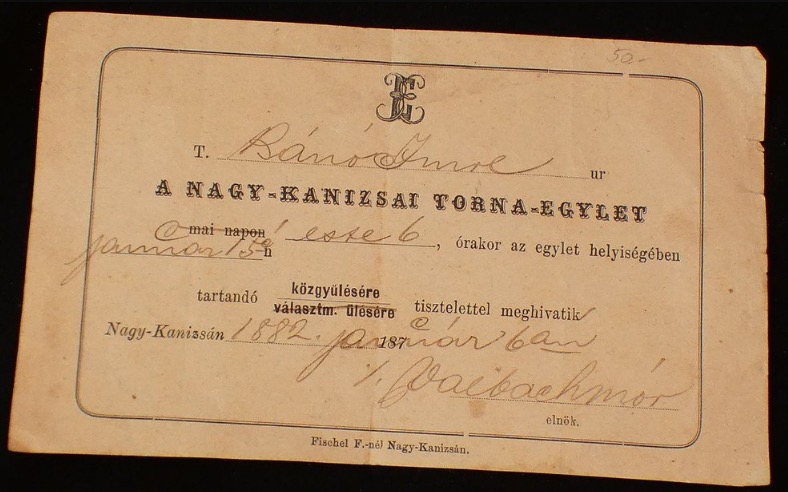 50-
T. Bánó Imre ur
A NAGY-KANIZSAI TORNA-EGYLET
mai napon este 6, órakor az egylet helyiségében
január 15én
tartandó közgyülésére
választm. ülésére tisztelettel meghivatik
Nagy-Kanizsán 1882. január 187 6án
elnök.
Fischel F.-nél Nagy-Kanizsán.